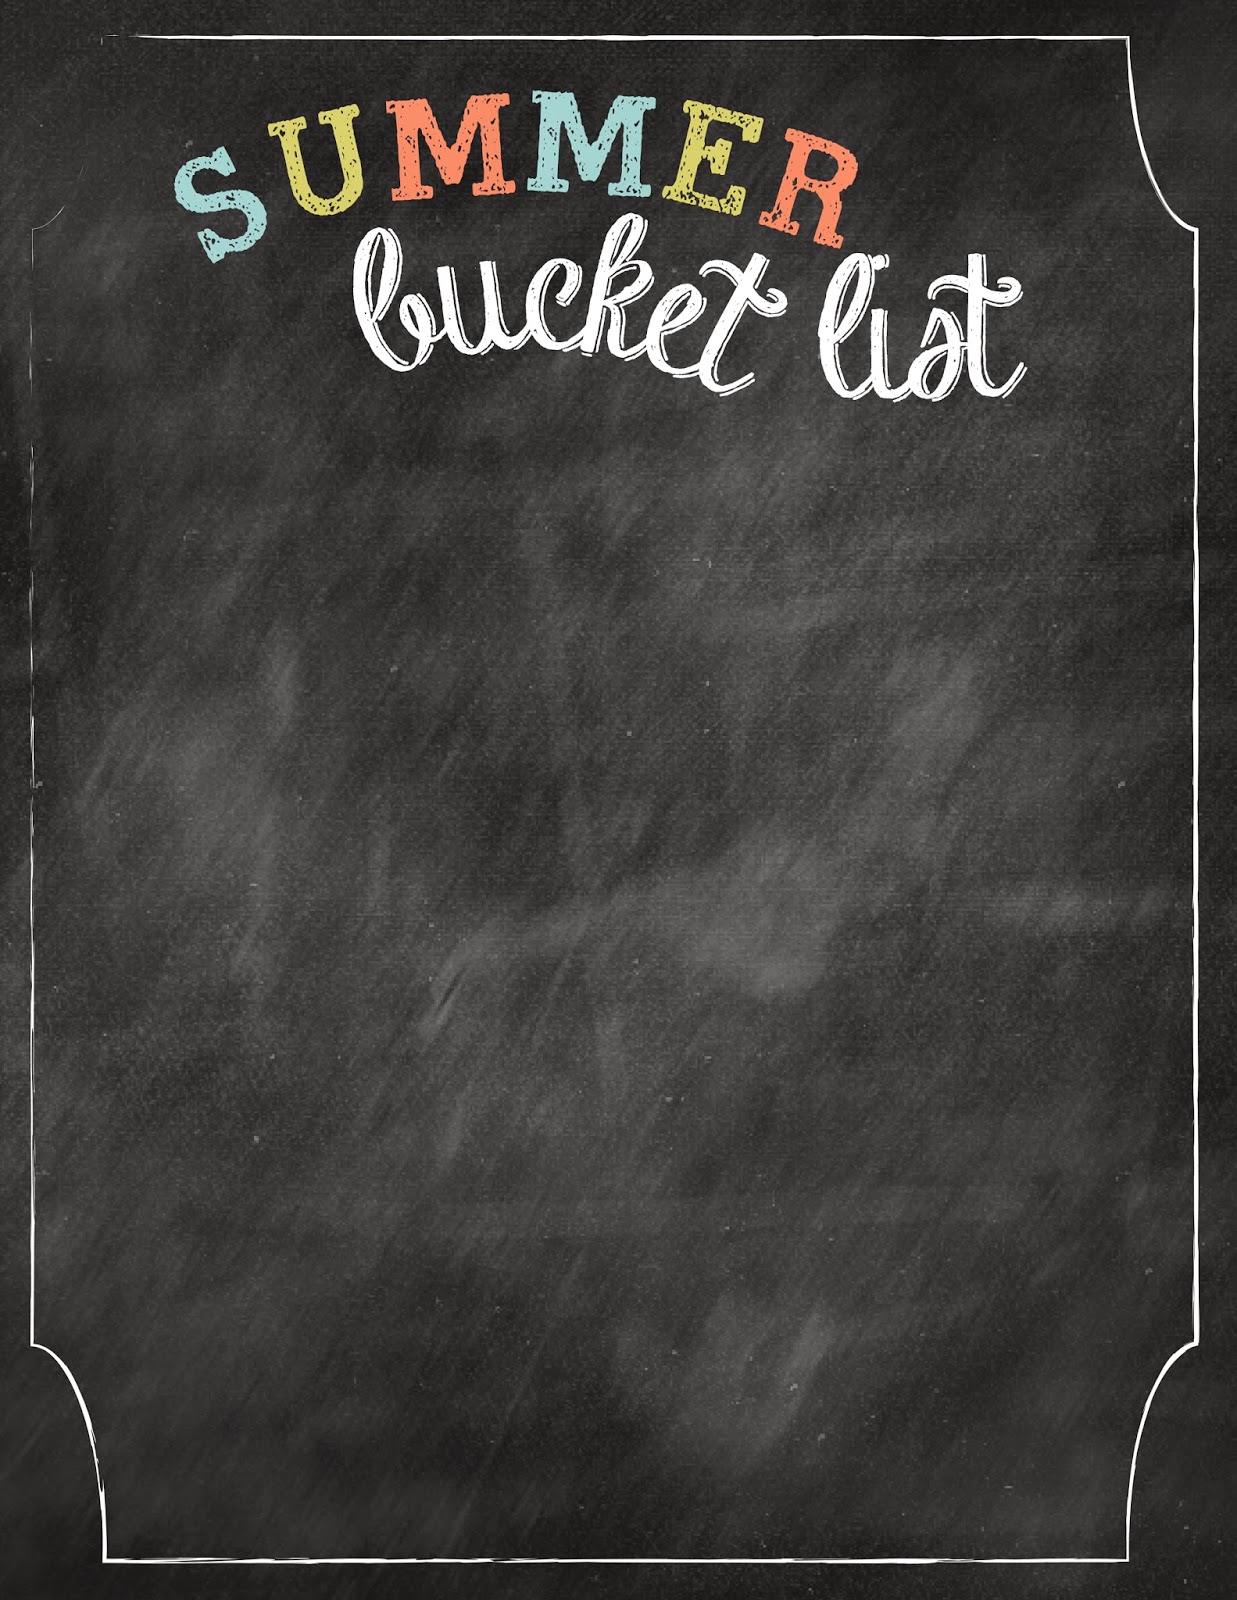 SUMMER
bucket list